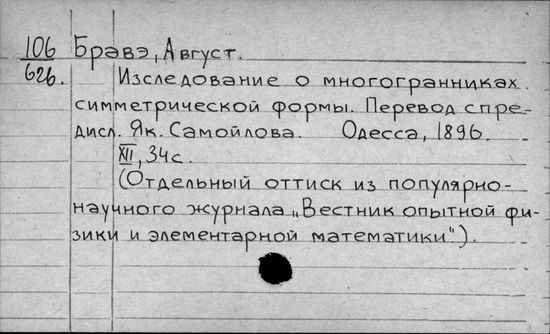 106 Бравэ, Август.
626. Изследование о многогранниках
симметрической формы. Перевод с пре-
дисл. Як. Самойлова. Одесса, 1896.
XII, 34 с.
(Отдельный оттиск из популярно-
научного журнала „Вестник опытной фи-
зики и элементарной математики").